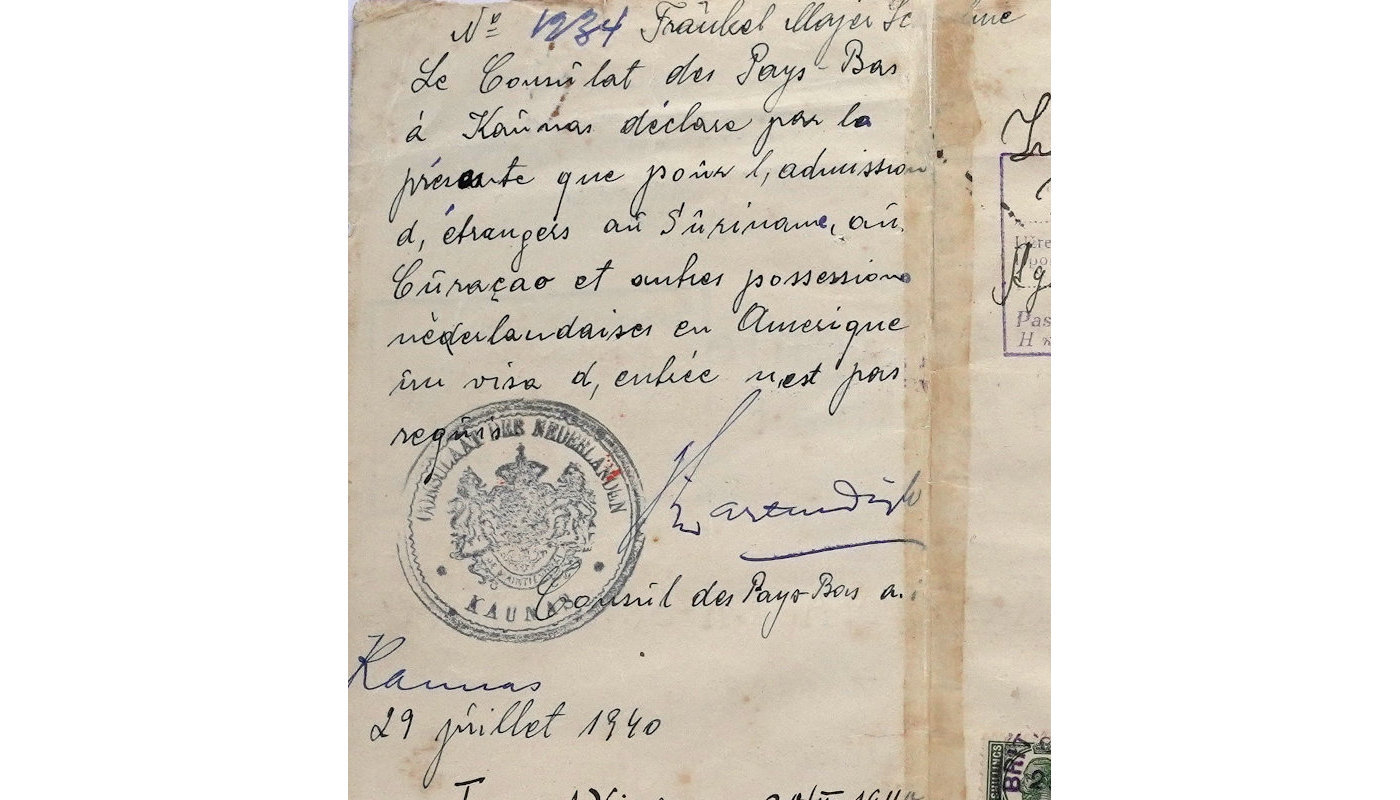 Nº 1234 Fräukel Majer
Le Consûlat des Pays-Bas
á Kaûnas déclare par la
présente que poûr l, admission
d, étrangers aû Sûriname, aû
Cûraçao et autres possessions
néderlandaises en Amerique
ûn visa d, entrée n,est pas
reqûis
CONSULAAT DER NEDERLANDEN
KAUNAS
Consûl des Pays-Bas a.i
Kaunas
29 jûillet 1940
Pas
SHILLINGS
BRIT
2